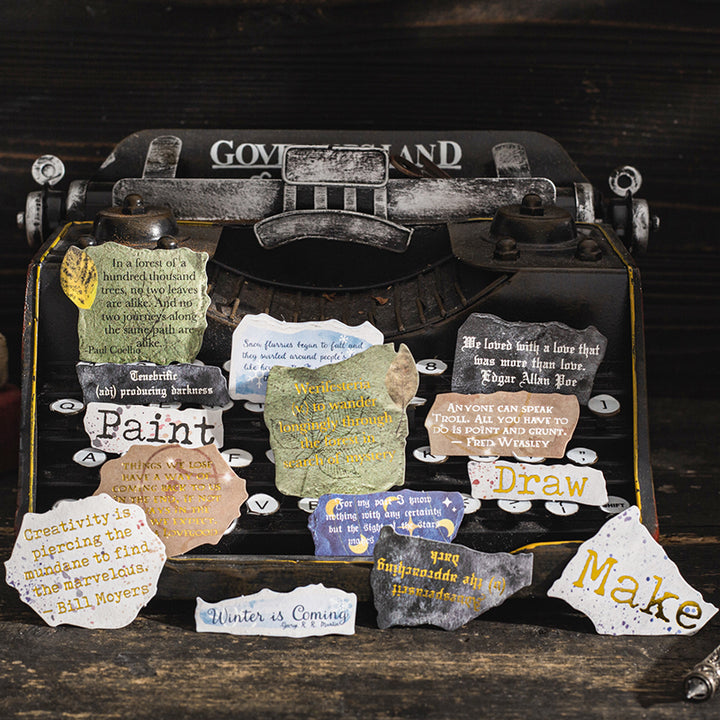 GOVE LAND
In a forest of a
hundred thousand
trees, no two leaves
are alike. And no
two journeys along
the same path are
alike.
-Paul Coelho
Snow flurries began to fall and
they swirled around people's
like
We loved with a love that
was more than love.
Edgar Allan Poe
Tenebrific
(adj) producing darkness
Werifesteria
(v) to wander
longingly through
the forest in
search of mystery
Anyone can speak
Troll. All you have to
do is point and grunt.
— Fred Weasley
Paint
Things we lose
have a way of
coming back to us
in the end, if not
Draw
For my part I know
nothing with any certainty
but the sight of the stars
makes
Creativity is
piercing the
mundane to find
the marvelous.
— Bill Moyers
(v) the approaching
Dark
Make
Winter is Coming
George R. R. Martin
Q
I
A
F
V
B
8
SHIFT